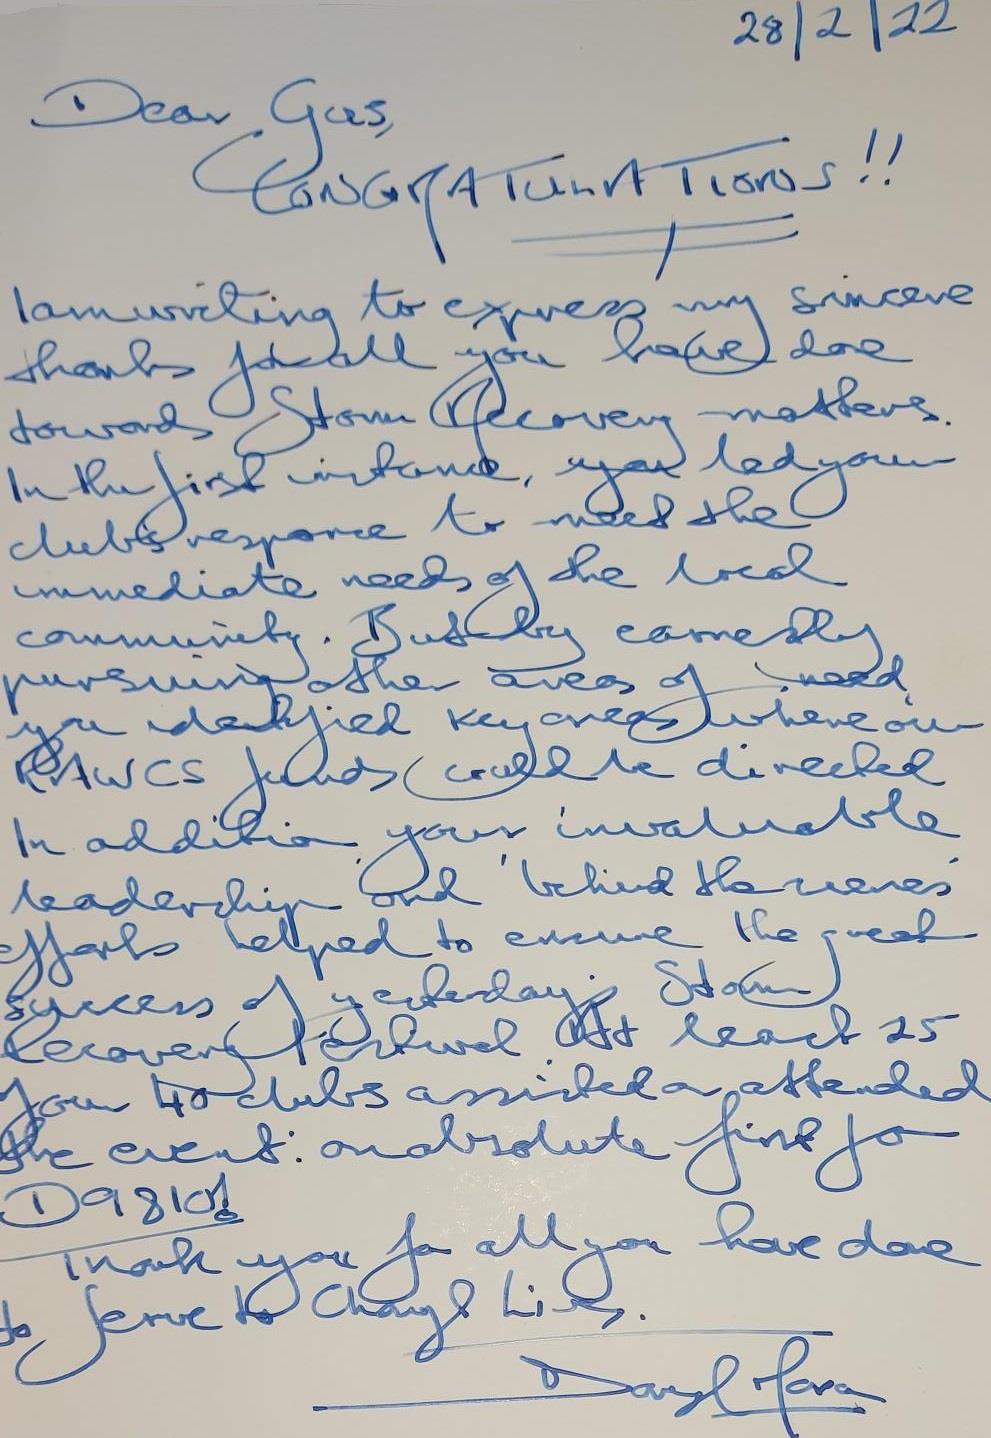 28/2/22
Dear Gus,
CONGRATULATIONS!!
I am writing to express my sincere
thanks for all you have done
towards Storm Recovery matters.
In the first instance, you led your
club's response to meet the
immediate needs of the local
community. But by earnestly
pursuing other areas of need,
you identified key areas where our
RAWCS funds could be directed
In addition, your invaluable
leadership and 'behind the scenes'
efforts helped to ensure the great
success of yesterday's Storm
Recovery Festival At least 25
of our 40 clubs assisted or attended
the event: an absolute first for
D9810!
Thank you for all you have done
to Serve to Change Lives.
Daryl Moran